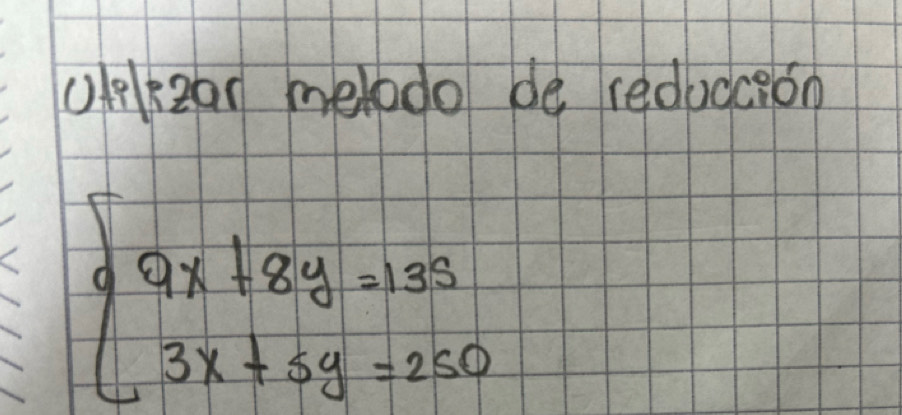 Utilizar metodo de reducción
9x + 8y = 135
3x + 5y = 250